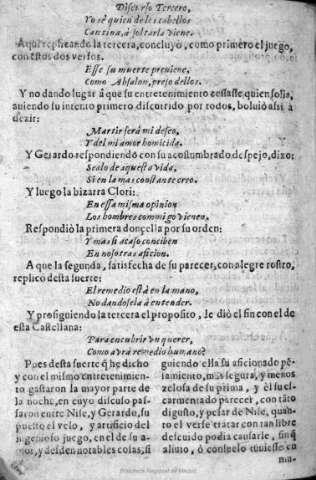 Discurso Tercero,
Yo sè quien de los cabellos
Cantina, à soltarla viene.
Aqui replicando la tercera, concluyo, como primero el juego,
con estos dos versos.
Esse su muerte preuiene,
Como Absalon, preso dellos.
Y no dando lugar à que su entretenimiento cessasse, quien solia,
auiendo su intento primero discurrido por todos, boluiò assi à
dezir:
Martir serà mi deseo,
Y del mi amor homicida.
Y Gerardo respondiendo con su acostumbrado despejo, dixo:
Sealo de aquesta vida,
Si en la mas constante creo.
Y luego la bizarra Clori:
En essa misma opinion
Los hombres commigo vienen.
Respondiò la primera donçella por su orden:
Y mas si acaso conciben
En nosotras aficion.
A que la segunda, satisfecha de su parecer, con alegre rostro,
replicò desta suerte:
El remedio està en la mano,
No dandosela à entender.
Y prosiguiendo la tercera el proposito, le diò el fin con el de
esta Castellana:
Para encubrir un querer,
Como avrà remedio humano?
Pues desta suerte q̃ he dicho
y con el mismo entretenimien-
to gastaron la mayor parte de
la noche, en cuyo discuso pas-
saron entre Nise, y Gerardo, su
puesto el velo, y artificio del
ingenioso juego, en el de su a-
mor, y desden notables cosas, si
guiendo ella su aficionado pẽ-
samiento, mas segura, y menos
zelosa de su prima, y èl su es-
carmentado parecer, con tãto
disgusto, y pesar de Nise, quan-
to el verse tratar con tan libre
descuido podia causarle, sinq̃
aliuio, ò consuelo tuuiesse en
mil-
Biblioteca Nacional de España